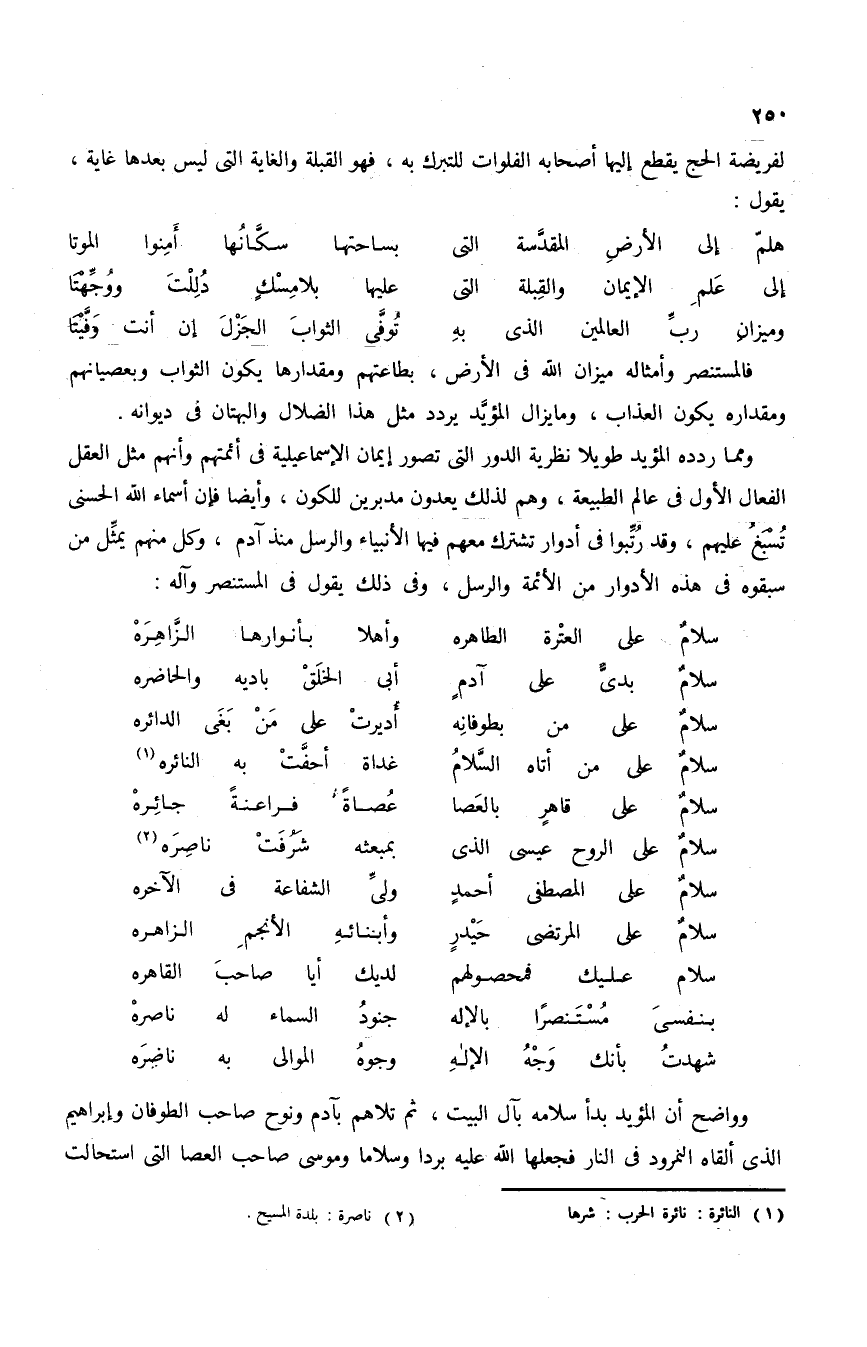 ٢٥٠
لفريضة الحج يقطع إليها أصحابه الفلوات للتبرك به ، فهو القبلة والغاية التى ليس بعدها غاية ،
يقول :
هلمّ إلى الأرضِ المقدَّسة التى بساحتها سكَّانُها أَمِنوا الموتا
إلى عَلمِ الإيمان والقِبلة التى عليها بلامِسْكٍ دُلِلْتَ ووُجِّهْتَا
وميزانِ ربِّ العالمين الذى بهِ تُوفَّى الثوابَ الجَزْلَ إن أنت وَفَّيْتَا
فالمستنصر وأمثاله ميزان الله فى الأرض ، بطاعتهم ومقدارها يكون الثواب وبعصيانهم
ومقداره يكون العذاب ، ومايزال المؤيَّد يردد مثل هذا الضلال والبهتان فى ديوانه .
ومما ردده المؤيد طويلا نظرية الدور التى تصور إيمان الإسماعيلية فى أئمتهم وأنهم مثل العقل
الفعال الأول فى عالم الطبيعة ، وهم لذلك يعدون مدبرين للكون ، وأيضا فإن أسماء الله الحسنى
تُسْبَغُ عليهم ، وقد رُتِّبوا فى أدوار تشترك معهم فيها الأنبياء والرسل منذ آدم ، وكل منهم يمثِّل من
سبقوه فى هذه الأدوار من الأئمة والرسل ، وفى ذلك يقول فى المستنصر وآله :
سلامٌ على العتْرة الطاهره وأهلا بأنوارها الزَّاهِرَهْ
سلامٌ بدىٌّ على آدمٍ أبى الخَلَقْ باديه والحاضره
سلامٌ على من بطوفانِه أُديرتْ على مَنْ بَغَى الدائره
سلامٌ على من أتاه السَّلامُ غداة أحفَّتْ به النائره(١)
سلامٌ على قاهرٍ بالعَصا عُصاةً فراعنةً جائِرهْ
سلامٌ على الروح عيسى الذى بمبعثه شَرُفَتْ ناصِرَه(٢)
سلامٌ على المصطفى أحمدٍ ولىِّ الشفاعة فى الآخره
سلامٌ على المرتضى حَيْدرٍ وأبنائهِ الأنجمِ الزاهره
سلام عليك فمحصولهم لديك أيا صاحبَ القاهره
بنفسىَ مُسْتَنصرًا بالإله جنودُ السماء له ناصرهْ
شهدتُ بأنك وَجْهُ الإلٰهِ وجوهُ الموالى به ناضِرَه
وواضح أن المؤيد بدأ سلامه بآل البيت ، ثم تلاهم بآدم ونوح صاحب الطوفان وإبراهيم
الذى ألقاه النمرود فى النار فجعلها الله عليه بردا وسلاما وموسى صاحب العصا التى استحالت
(١) النائرة : نائرة الحرب : شرها (٢) ناصرة : بلدة المسيح .